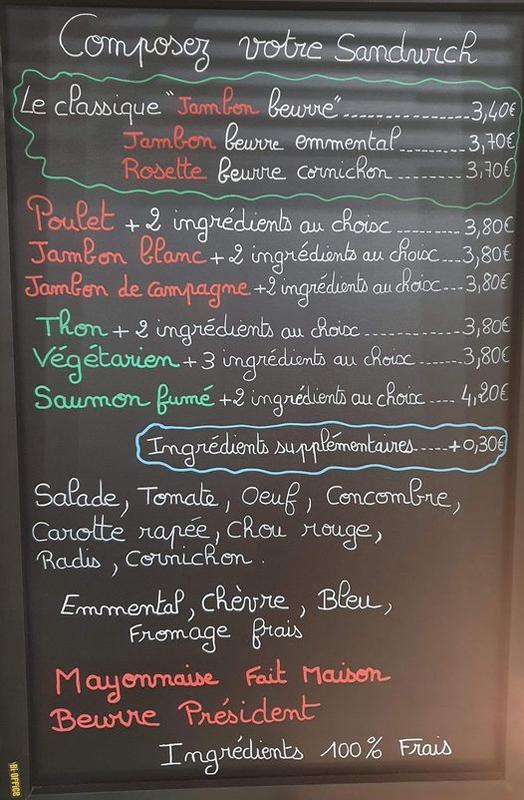 Composez votre Sandwich
Le classique "Jambon beurre"................3,40€
Jambon beurre emmental.........3,70€
Rosette beurre cornichon..........3,70€
Poulet + 2 ingrédients au choix.........3,80€
Jambon blanc + 2 ingrédients au choix...3,80€
Jambon de campagne +2 ingrédients au choix...3,80€
Thon + 2 ingrédients au choix.............3,80€
Végétarien + 3 ingrédients au choix......3,80€
Saumon fumé +2 ingrédients au choix.... 4,20€
Ingrédients supplémentaires.....+0,30€
Salade, Tomate, Oeuf, Concombre,
Carotte rapée, Chou rouge,
Radis, Cornichon.
Emmental, Chèvre, Bleu,
Fromage frais
Mayonnaise Fait Maison
Beurre Président
Ingrédients 100% Frais
BI-OFFICE